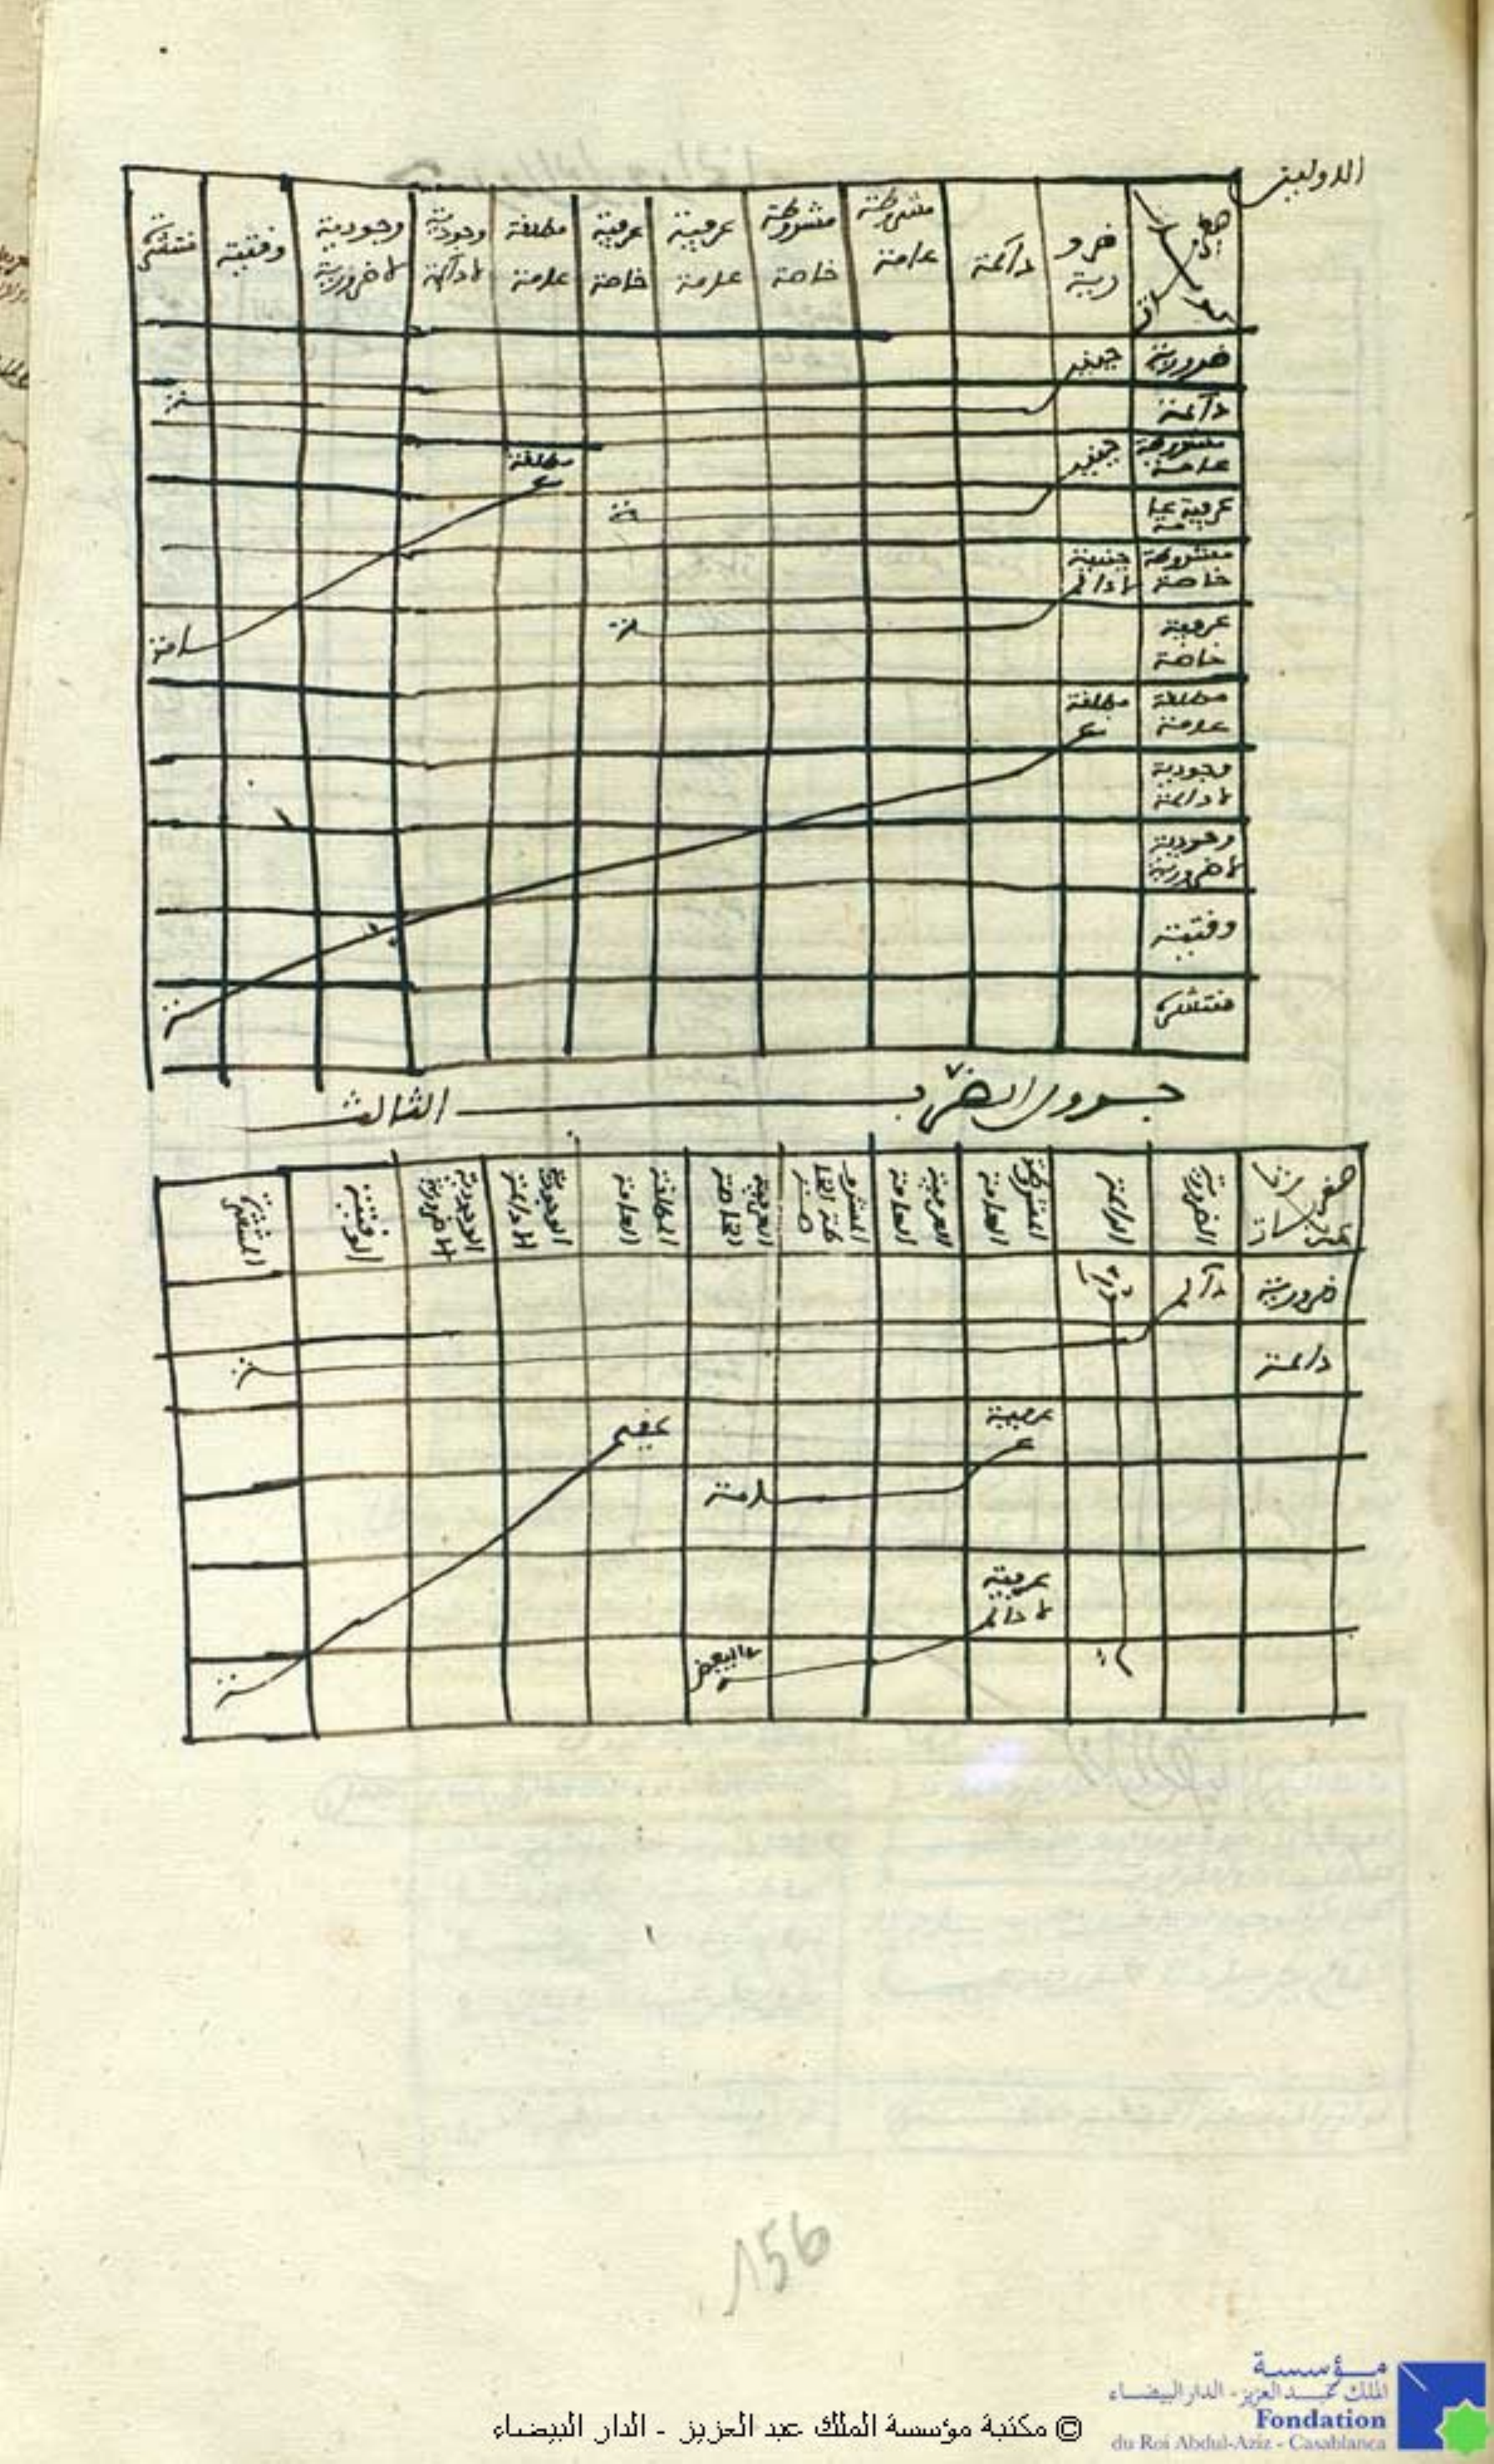 الاوليين
ضرورية دائمة مشروطة عامة مشروطة خاصة عرفية عامة عرفية خاصة مطلقة عامة وجودية لا دائمة وجودية لا ضرورية وقتية منتشرة
ضرورية حينية
دائمة ـة
مشروطة عامة حينية مطلقة
عرفية عامة ـة عـ
مشروطة خاصة حينية لا دائم
عرفية خاصة ـة ـامة
مطلقة عامة مطلقة عـ
وجودية لا دائمة
وجودية لا ضرورية
وقتية
منتشرة ـة
جدول الضرب الثالث
صغريات كبريات الضرورية الدائمة المشروطة العامة العرفية العامة المشروطة الخاصة العرفية الخاصة المطلقة العامة الوجودية اللادائمة الوجودية اللاضرورية الوقتية المنتشرة
ضرورية دآئـ
دائمة ـة
عرفية عقيم
عـ ـامة
عرفية لا دائم
في البعض ـة
156
مؤسسة
الملك عبد العزيز - الدار البيضاء
Fondation
du Roi Abdul-Aziz - Casablanca
© مكتبة مؤسسة الملك عبد العزيز - الدار البيضاء